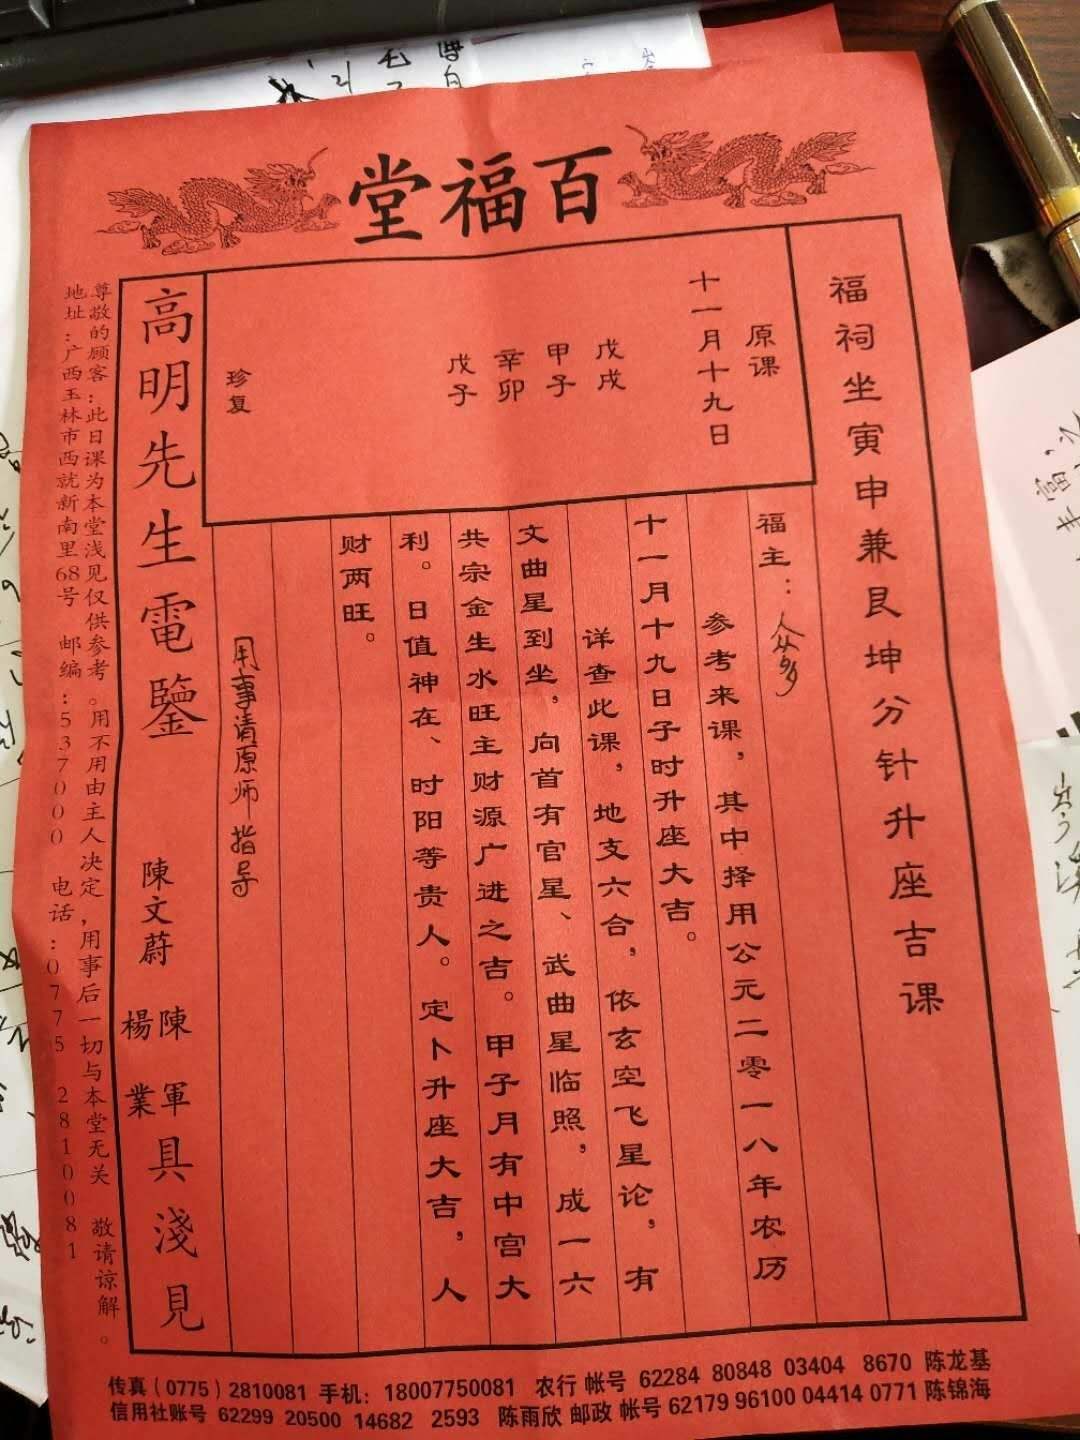 百福堂
福祠坐寅申兼艮坤分针升座吉课
原课
十一月十九日
戊戌
甲子
辛卯
戊子
珍复
福主：人众多
参考来课，其中择用公元二零一八年农历
十一月十九日子时升座大吉。
详查此课，地支六合，依玄空飞星论，有
文曲星到坐，向首有官星、武曲星临照，成一六
共宗金生水旺主财源广进之吉。甲子月有中宫大
利。日值神在、时阳等贵人。定卜升座大吉，人
财两旺。
用事请原师指导
高明先生電鑒
陳文蔚
陳軍
楊業
具淺見
尊敬的顾客：此日课为本堂浅见仅供参考。用不用由主人决定，用事后一切与本堂无关 敬请谅解。
地址：广西玉林市西就新南里68号 邮编：537000 电话：0775 2810081
传真（0775）2810081 手机：18007750081 农行 帐号 62284 80848 03404 8670 陈龙基
信用社账号 62299 20500 14682 2593 陈雨欣 邮政 帐号 62179 96100 04414 0771 陈锦海